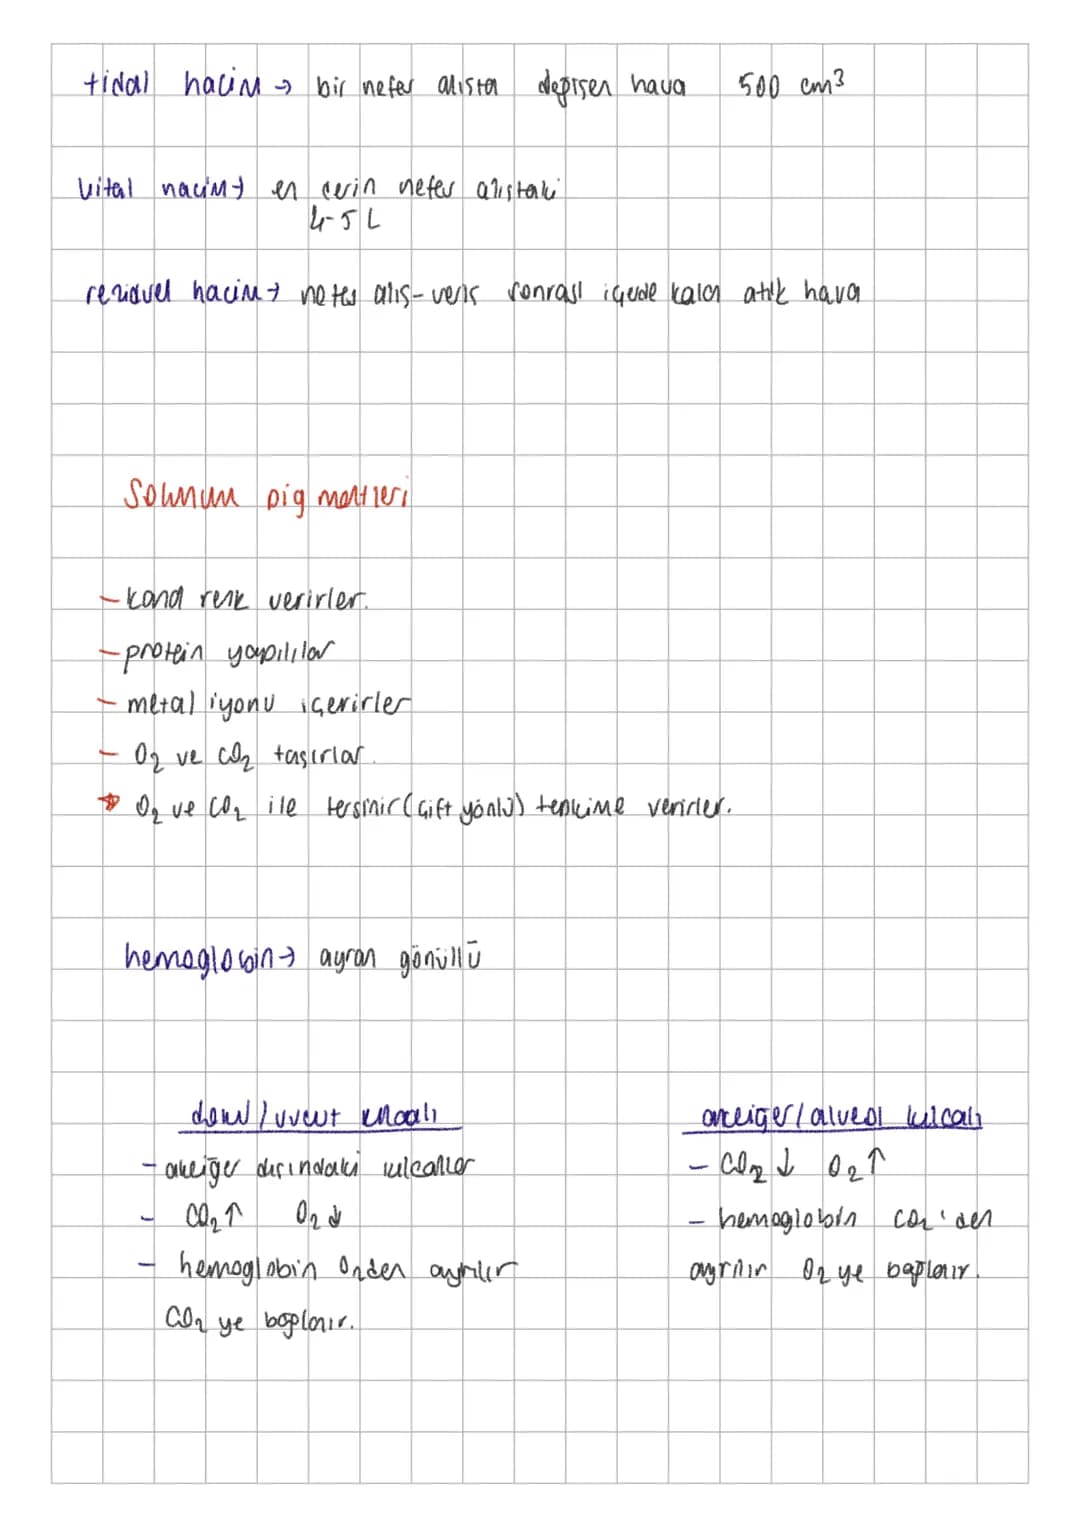 tidal hacim → bir nefes alışta değişen hava 500 cm³
vital hacim → en derin nefes alıştaki
4-5 L
rezidüel hacim → nefes alış-veriş sonrası içeride kalan atık hava
Solunum pigmentleri
- kana renk verirler.
- protein yapılılar
- metal iyonu içerirler
- O₂ ve CO₂ taşırlar.
★ O₂ ve CO₂ ile tersinir (çift yönlü) tepkime verirler.
hemoglobin → ayran gönüllü
doku / vücut kılcalı
- akciğer dışındaki kılcallar
- CO₂↑ O₂↓
- hemoglobin O₂den ayrılır
CO₂ ye bağlanır.
akciğer / alveol kılcalı
- CO₂↓ O₂↑
- hemoglobin CO₂'den
ayrılır O₂ ye bağlanır.